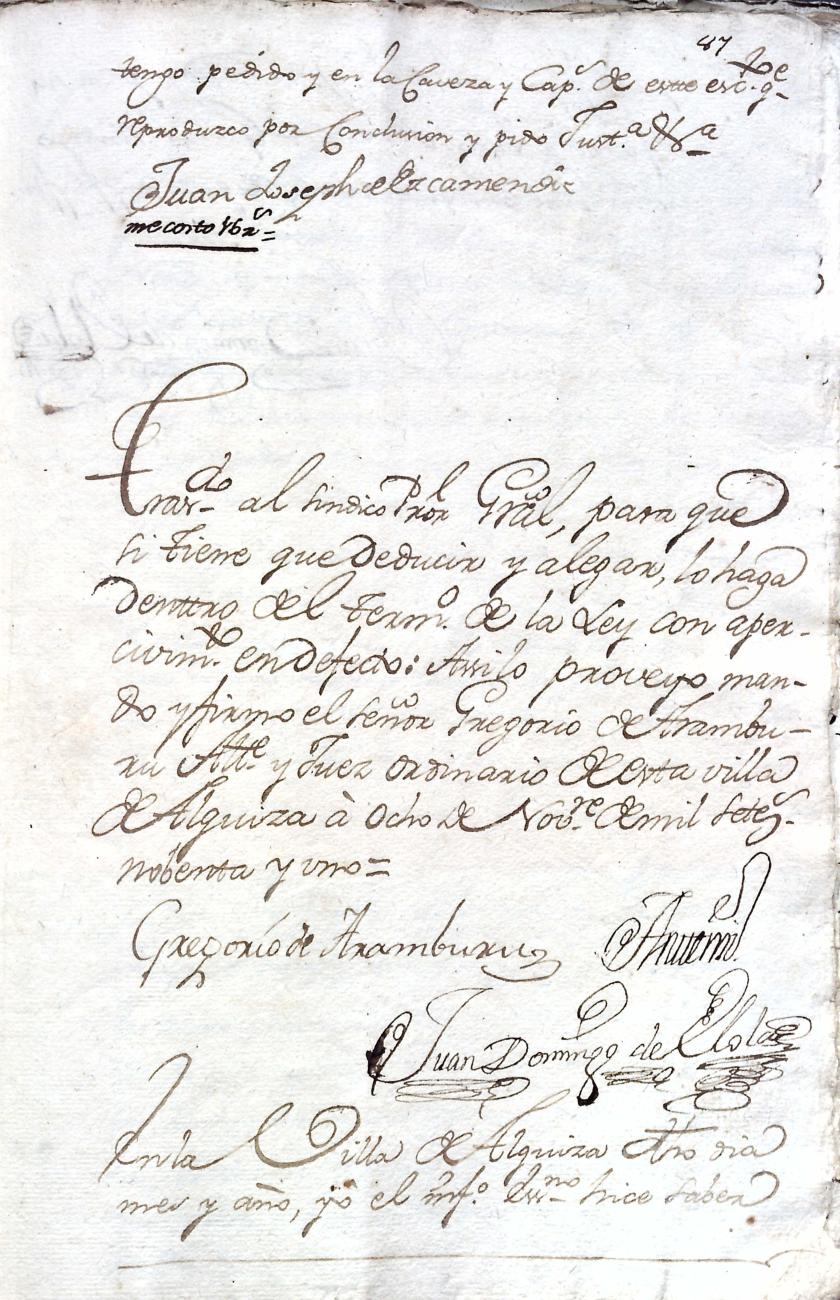 87
tengo pedido y en la Caveza y Cap.^s de este esc.^to q.^e
reproduzco por Conclusion y pido Just.^a &.^a
Juan Joseph de Ezcamendi
me corto
Tras.^do al Sindico Pror Gral, para que
si tiene que Deducir y alegar, lo haga
Denttro del term.^o de la Ley con aper-
civim.^to en Defecto: Assi lo proveyo man-
do y firmo el señor Gregorio de Arambu-
ru Alc.^e y Juez ordinario de esta villa
de Alquiza à Ocho de Nov.^re de mil setez.^s
nobenta y uno=
Gregorio de Aramburu
Antemi
Juan Domingo de Elola
En la Villa de Alquiza dho dia
mes y año, yo el inf.^o Ess.^no hice saber